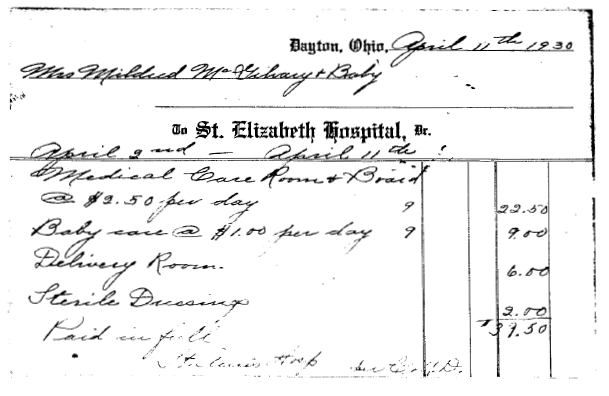 Dayton, Ohio, April 11th 1930
Mrs Mildred McGilvary & Baby
To St. Elizabeth Hospital, Dr.
April 2nd — April 11th
Medical Care Room & Board
@ $2.50 per day 9 22.50
Baby care @ $1.00 per day 9 9.00
Delivery Room. 6.00
Sterile Dressing 2.00
Paid in full $39.50
Hosp per